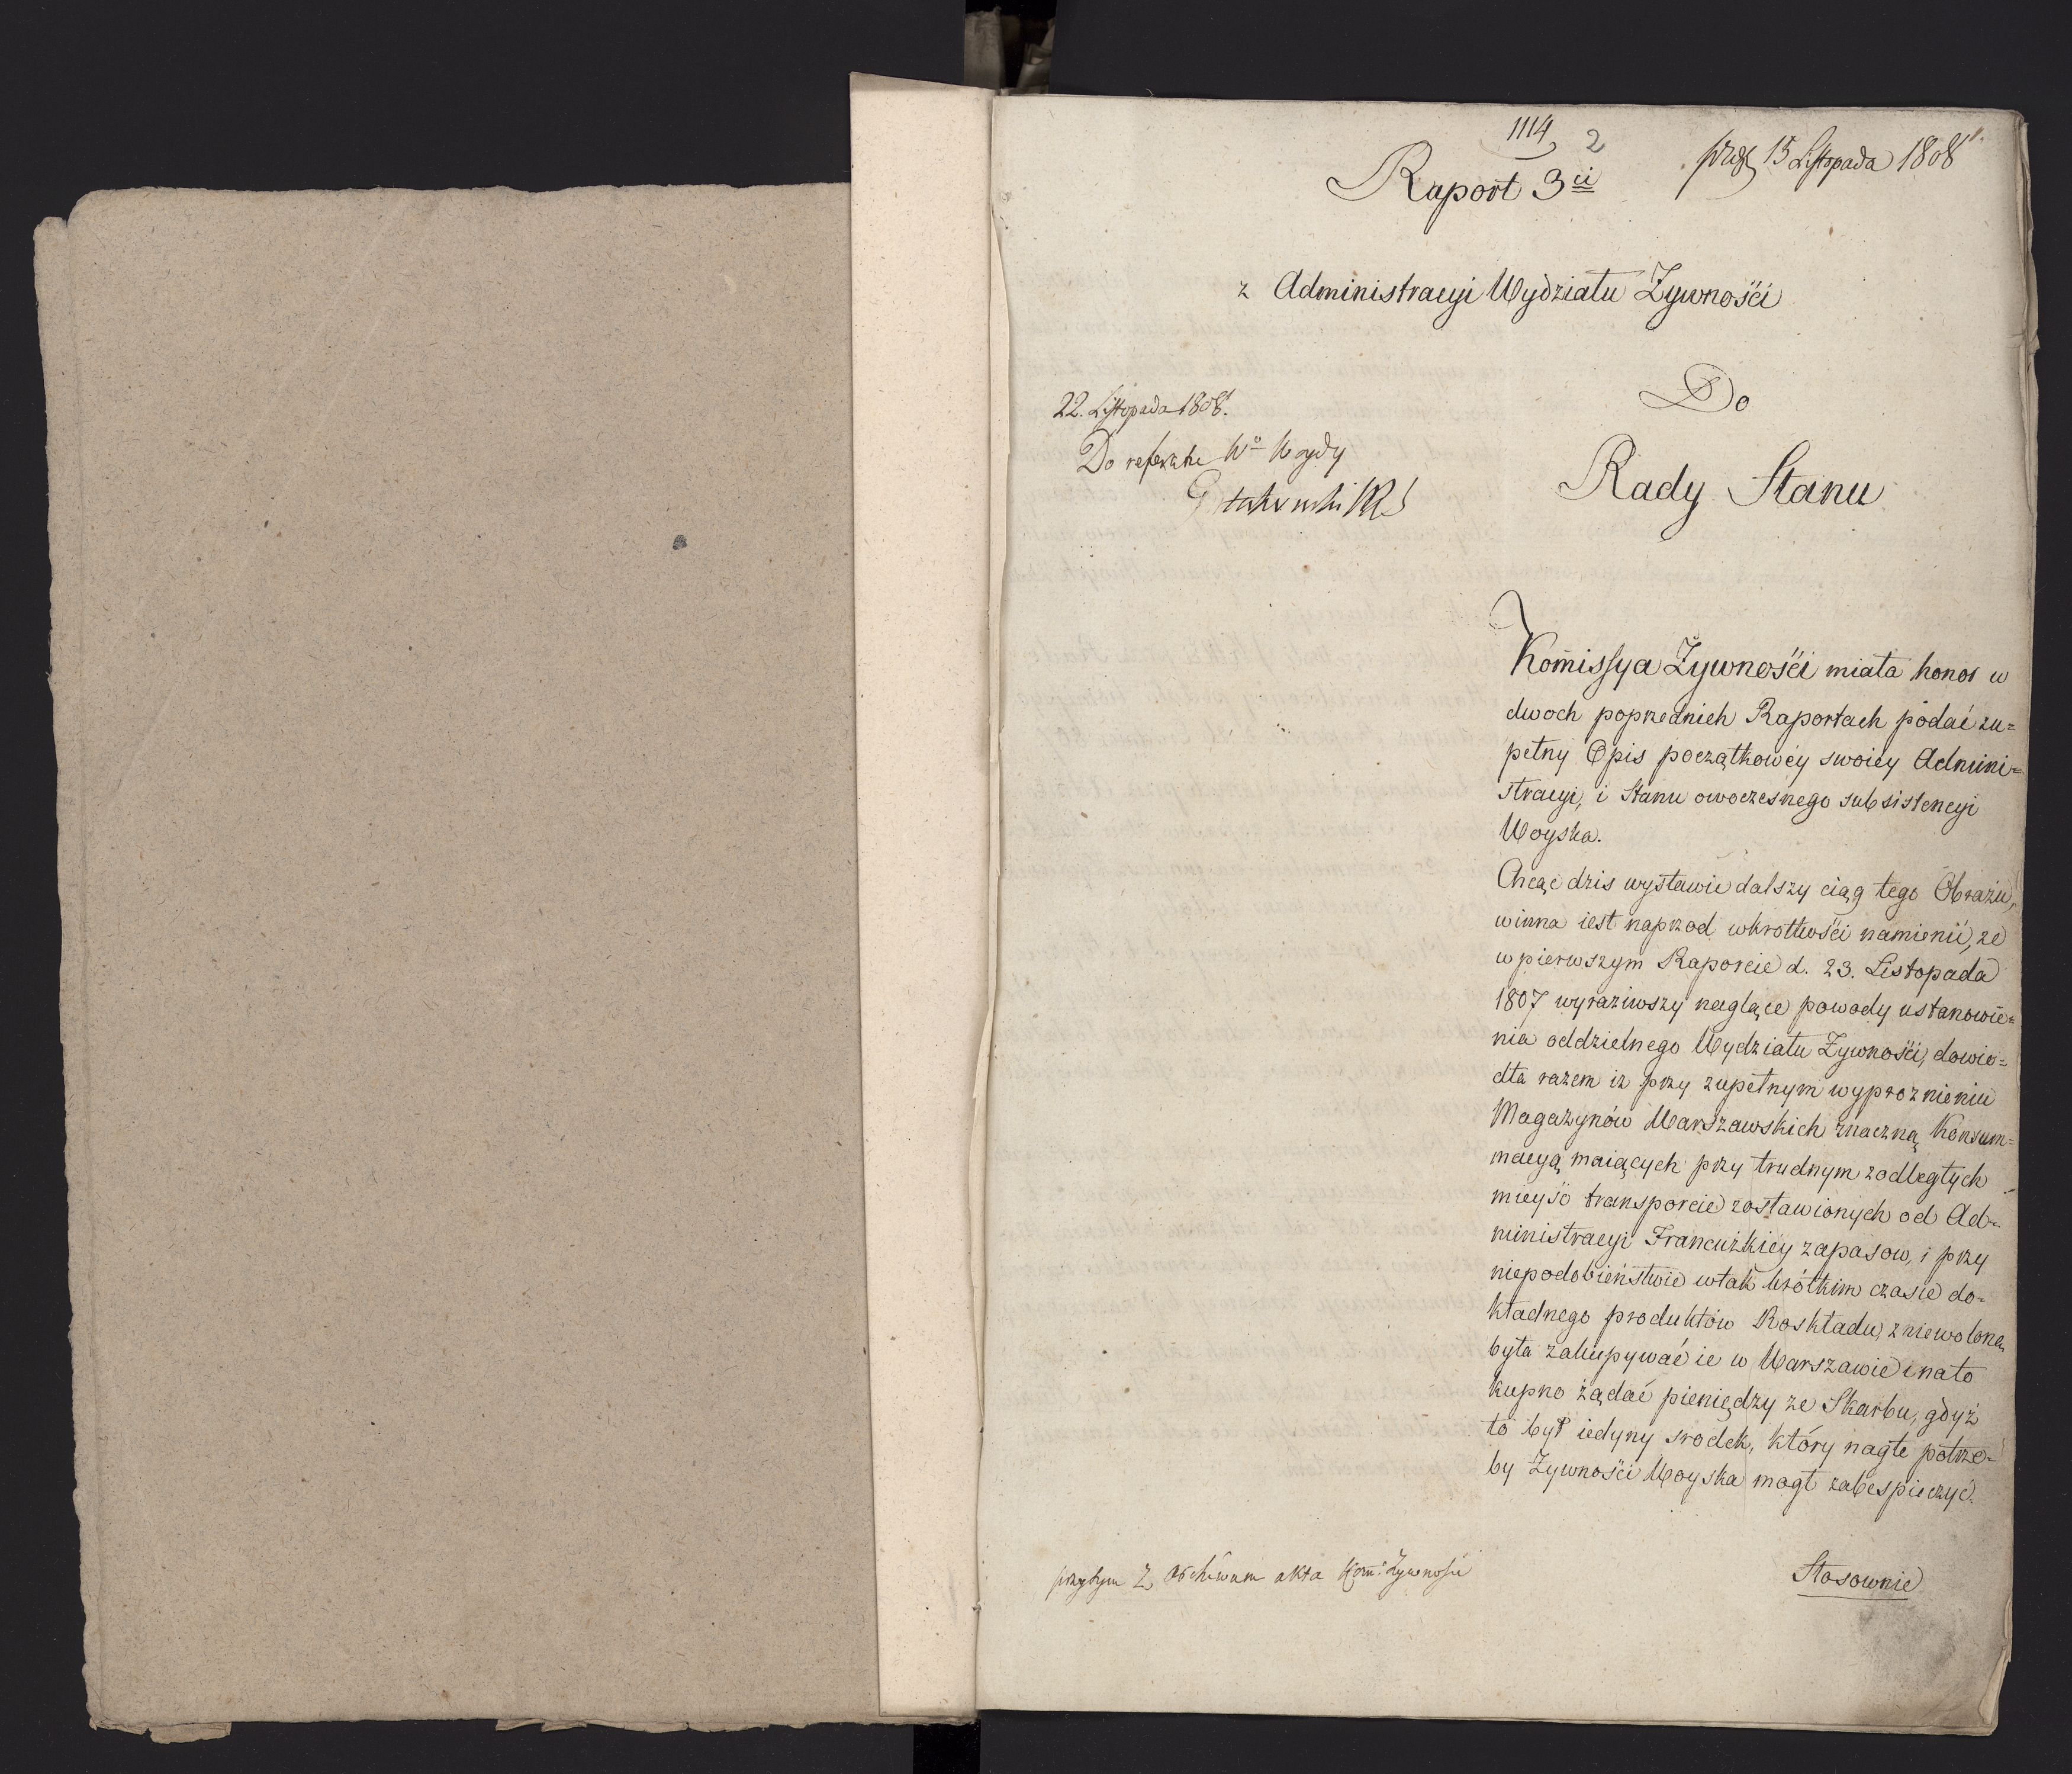 1114
2
15 Listopada 1808
Raport 3ci
z Administracyi Wydziału Zywności
22. Listopada 1808.
Do
Do referatu Wo
Rady Stanu
Kom̃issya Zywności miała honor w
dwoch poprzednich Raportach podać zu=
pełny Opis początkowéy swoiéy Admini=
stracyi, i Stanu owoczesnego subsistencyi
Woyska.
Chcąc dzis wystawić dalszy ciąg tego Obrazu,
winna iest naprzod wkrotkości namienić, ze
w pierwszym Raporcie d. 23. Listopada
1807 wyraziwszy naglące powody ustanowie=
nia oddzielnego Wydziału Zywności, dowio=
dła razem iz przy zupełnym wyproznieniu
Magazynów Warszawskich znaczną Konsum=
macyą maiących przy trudnym z odległych
mieysc transporcie zostawionych od Ad=
ministracyi Francuzkiéy zapasow, i przy
niepodobieństwie w tak krótkim czasie do=
kładnego produktów Roskładu, zniewolona
była zakupywać ie w Warszawie i na to
kupno żądać pieniędzy ze Skarbu, gdyż
to był iedyny srodek, który nagłe potrze=
by Zywności Woyska mogł zabespieczyć.
przytym z Archiwum akta Kom: Zywności
Stosownie